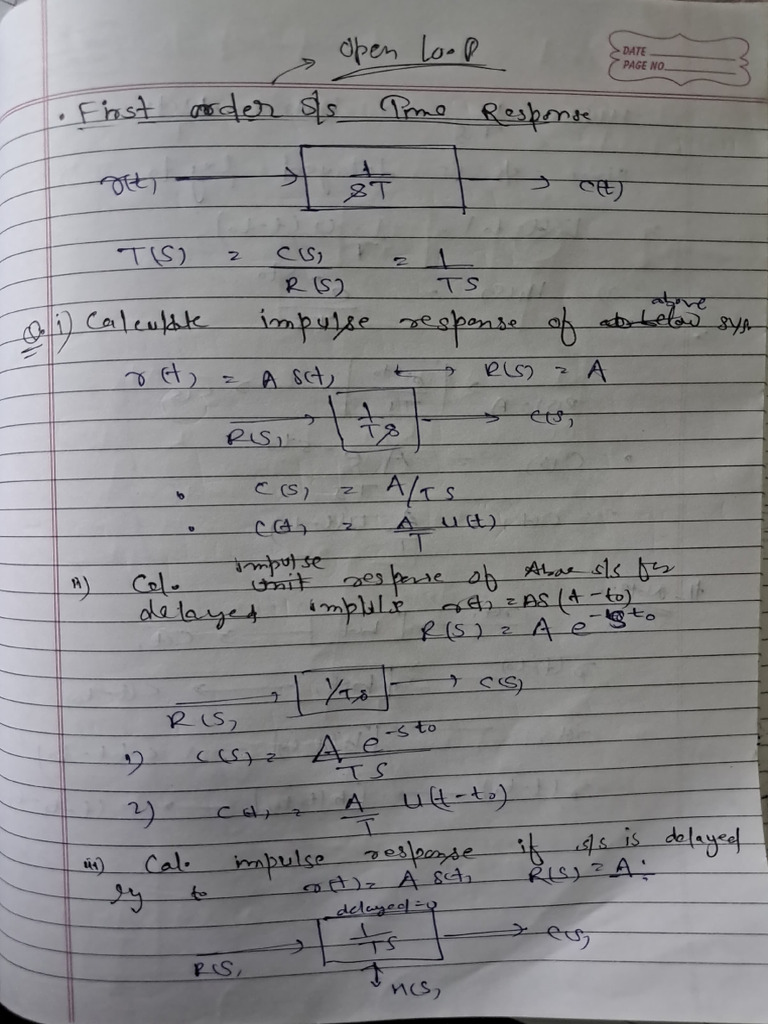 → Open Loop
DATE
PAGE NO.
• First order s/s Time Response
r(t) → 1/ST → c(t)
T(S) = C(S)/R(S) = 1/TS
Q i) Calculate impulse response of above sys
r(t) = A δ(t) ↔ R(S) = A
R(S) → 1/TS → C(S)
• C(S) = A/TS
• C(t) = A/T U(t)
ii) Cal. impulse response of Above s/s for
delayed impulse r(t) = Aδ(t-to)
R(S) = A e^-sto
R(S) → 1/TS → C(S)
1) C(S) = A e^-sto/TS
2) C(t) = A/T U(t-to)
iii) Cal. impulse response if s/s is delayed
by to r(t) = A δ(t) R(S) = A
R(S) → 1/TS → C(S)
H(S)